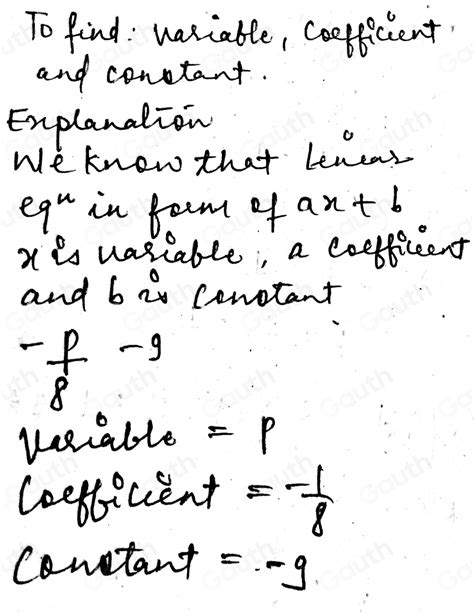 To find: variable, Coefficient
and constant.
Explanation
We know that linear
eqⁿ in form of ax + b
x is variable, a coefficient
and b is constant
-p/8 -9
Variable = p
Coefficient = -1/8
Constant = -9